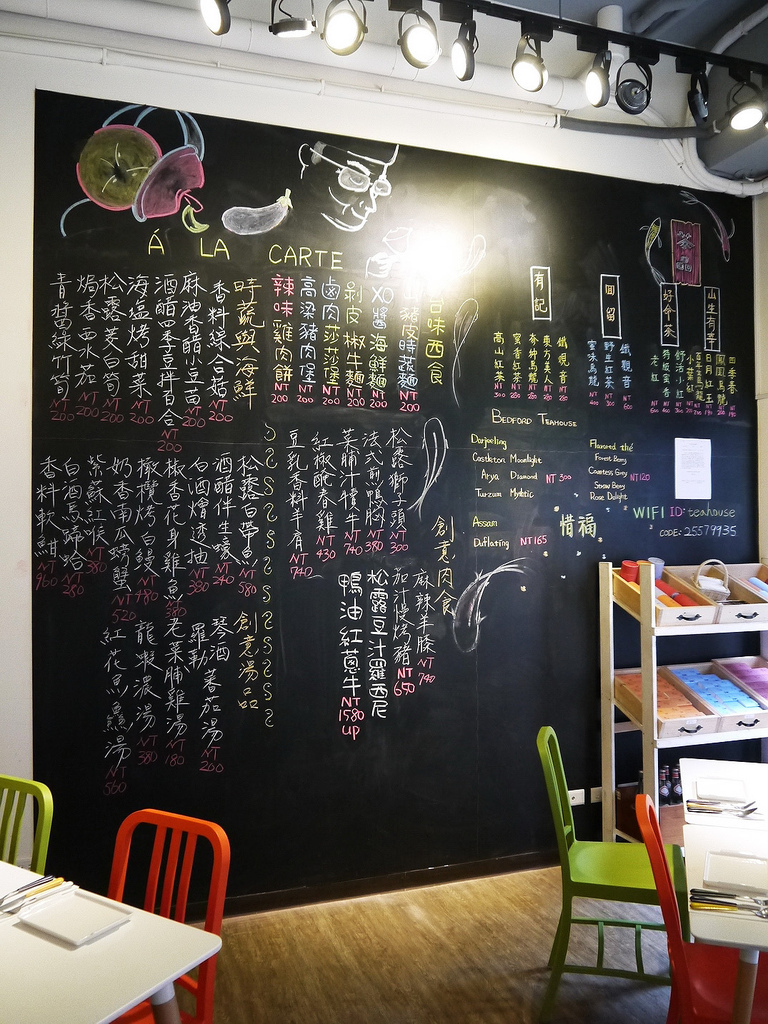 Á LA CARTE
時蔬與海鮮
香料綜合菇 NT 200
麻油香醋小豆苗 NT 200
酒醋四季豆拌百合 NT 200
海塩烤甜菜 NT 200
松露茭白筍 NT 200
焗香水茄 NT 200
青醬綠竹筍 NT 200
台味西食
豬皮時蔬麵 NT 200
XO醬海鮮麵 NT 200
剝皮椒牛麵 NT 200
滷肉莎莎堡 NT 200
高梁豬肉堡 NT 200
辣味雞肉餅 NT 200
松露白帶魚 NT 580
酒醋伴生蠔 NT 240
白酒燴透抽 NT 380
椒香花身雞魚
橄欖烤白鰻 NT 480
奶香南瓜螃蟹 NT 520
紫蘇紅喉 NT 380
白酒馬蹄蛤 NT 280
香料軟 NT 960
創意肉食
松露獅子頭 NT 300
法式煎鴨胸 NT 380
菜脯牛 NT 740
紅椒醃春雞 NT 430
豆乳香料羊肩 NT 740
麻辣羊膝 NT 740
茄汁慢烤豬 NT 650
松露豆汁羅西尼
鴨油紅蔥牛 NT 1580 up
創意湯品
琴酒蕃茄湯 NT 200
羅勒
老菜脯雞湯 NT 180
龍蝦濃湯 NT 380
紅花魚鱻湯 NT 560
茶品
山生有幸
四季春
日月紅玉
好命茶
舒活小紅
老紅
回留
鐵觀音 NT 600
野生紅茶 NT 300
蜜味烏龍
有記
鐵觀音 NT 280
東方美人 NT 280
奇種烏龍 NT 250
蜜香紅茶 NT 380
高山紅茶 NT 300
BEDFORD TEAHOUSE
Darjeeling
Castleton Moonlight
Arya Diamond NT 300
Turzum Mystic
Assam
Duflating NT165
Flavored thé
Forest Berry
Countess Grey NT120
Straw Berry
Rose Delight
惜福
WIFI ID: teahouse
CODE: 25579935